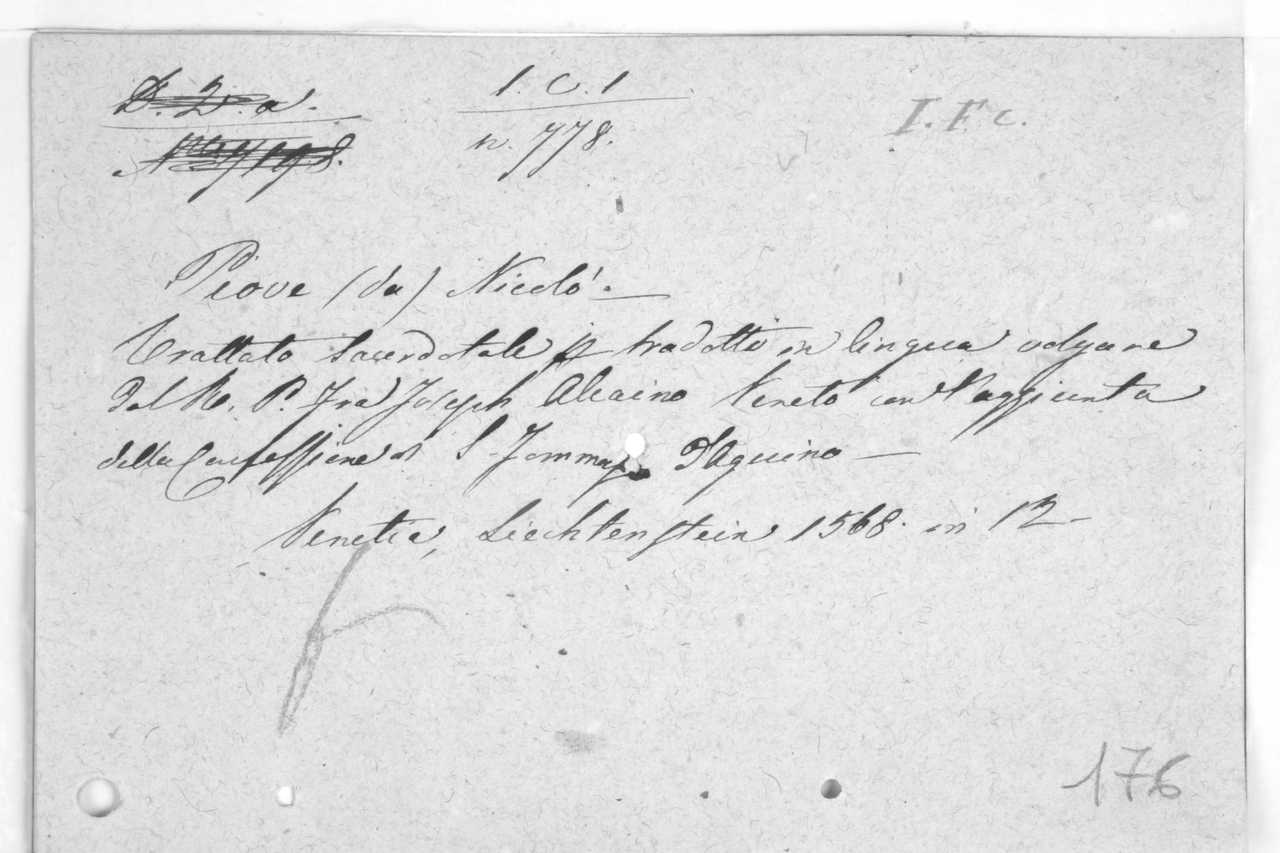 D. 2. a.
1. C. 1
I. F c.
n. 778.
Piove (da) Nicolò. —
Trattato Sacerdotale tradotto in lingua volgare
dal R. P. Fra Joseph Alcaino Veneto con l'aggiunta
della Confessione di S. Tommaso D'Aquino —
Venetia, Liechtenstein 1568. in 12 -
176